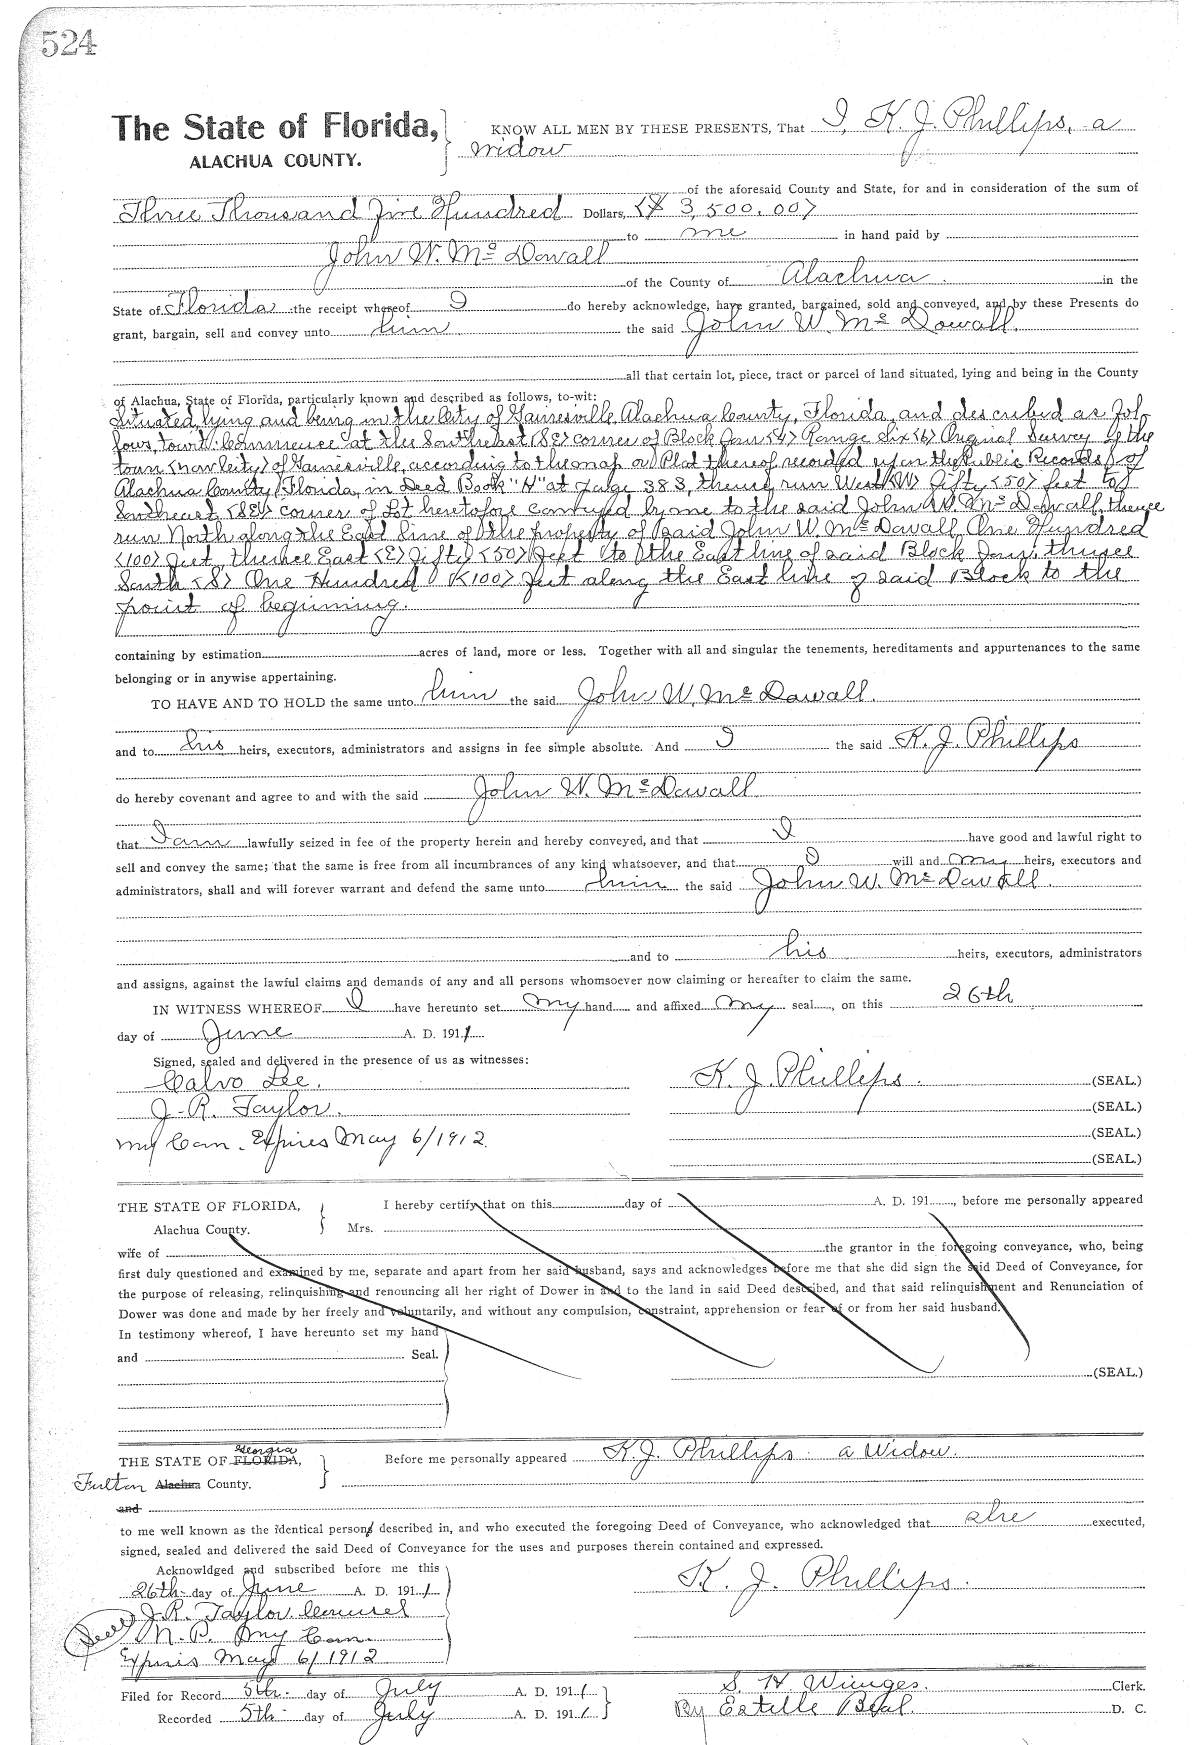 524
The State of Florida, KNOW ALL MEN BY THESE PRESENTS, That I, K. J. Phillips, a
ALACHUA COUNTY. widow
of the aforesaid County and State, for and in consideration of the sum of
Three Thousand Five Hundred Dollars, ($ 3,500.00)
to me in hand paid by
John W. McDowall
of the County of Alachua in the
State of Florida the receipt whereof I do hereby acknowledge, have granted, bargained, sold and conveyed, and by these Presents do
grant, bargain, sell and convey unto him the said John W. McDowall
all that certain lot, piece, tract or parcel of land situated, lying and being in the County
of Alachua, State of Florida, particularly known and described as follows, to-wit:
Situated, lying and being in the City of Gainesville Alachua County, Florida, and described as fol-
lows, towit: Commence at the Southeast (SE) corner of Block Four (4) Range Six (6) Original Survey of the
town (now city) of Gainesville, according to the map or Plat thereof recorded upon the Public Records of
Alachua County, Florida, in Deed Book "H" at page 383, thence run West (W) fifty (50) feet to
Southeast (SE) corner of Lot heretofore conveyed by me to the said John W. McDowall, thence
run North along the East line of the property of said John W. McDowall One Hundred
(100) feet, thence East (E) fifty (50) feet to the East line of said Block four; thence
South (S) One Hundred (100) feet along the East line of said Block to the
point of beginning.
containing by estimation acres of land, more or less. Together with all and singular the tenements, hereditaments and appurtenances to the same
belonging or in anywise appertaining.
TO HAVE AND TO HOLD the same unto him the said John W. McDowall.
and to his heirs, executors, administrators and assigns in fee simple absolute. And I the said K. J. Phillips
do hereby covenant and agree to and with the said John W. McDowall
that I am lawfully seized in fee of the property herein and hereby conveyed, and that I have good and lawful right to
sell and convey the same; that the same is free from all incumbrances of any kind whatsoever, and that I will and my heirs, executors and
administrators, shall and will forever warrant and defend the same unto him the said John W. McDowall.
and to his heirs, executors, administrators
and assigns, against the lawful claims and demands of any and all persons whomsoever now claiming or hereafter to claim the same.
IN WITNESS WHEREOF I have hereunto set my hand and affixed my seal, on this 26th
day of June A. D. 1911.
Signed, sealed and delivered in the presence of us as witnesses:
Calvo Lee. K. J. Phillips. (SEAL.)
J. R. Taylor. (SEAL.)
My Com. Expires May 6/1912. (SEAL.)
(SEAL.)
THE STATE OF FLORIDA, I hereby certify that on this day of A. D. 191 , before me personally appeared
Alachua County. Mrs.
wife of the grantor in the foregoing conveyance, who, being
first duly questioned and examined by me, separate and apart from her said husband, says and acknowledges before me that she did sign the said Deed of Conveyance, for
the purpose of releasing, relinquishing and renouncing all her right of Dower in and to the land in said Deed described, and that said relinquishment and Renunciation of
Dower was done and made by her freely and voluntarily, and without any compulsion, constraint, apprehension or fear of or from her said husband.
In testimony whereof, I have hereunto set my hand
and Seal.
(SEAL.)
Georgia
THE STATE OF FLORIDA, Before me personally appeared K. J. Phillips a Widow.
Fulton Alachua County.
and
to me well known as the identical persons described in, and who executed the foregoing Deed of Conveyance, who acknowledged that she executed,
signed, sealed and delivered the said Deed of Conveyance for the uses and purposes therein contained and expressed.
Acknowldged and subscribed before me this
26th day of June A. D. 1911. K. J. Phillips.
J. R. Taylor.
(Seal) N. P. My Com.
Expires May 6/1912
Filed for Record 5th day of July A. D. 1911 S. H. Wienges. Clerk.
Recorded 5th day of July A. D. 1911 By Estelle Beal. D. C.